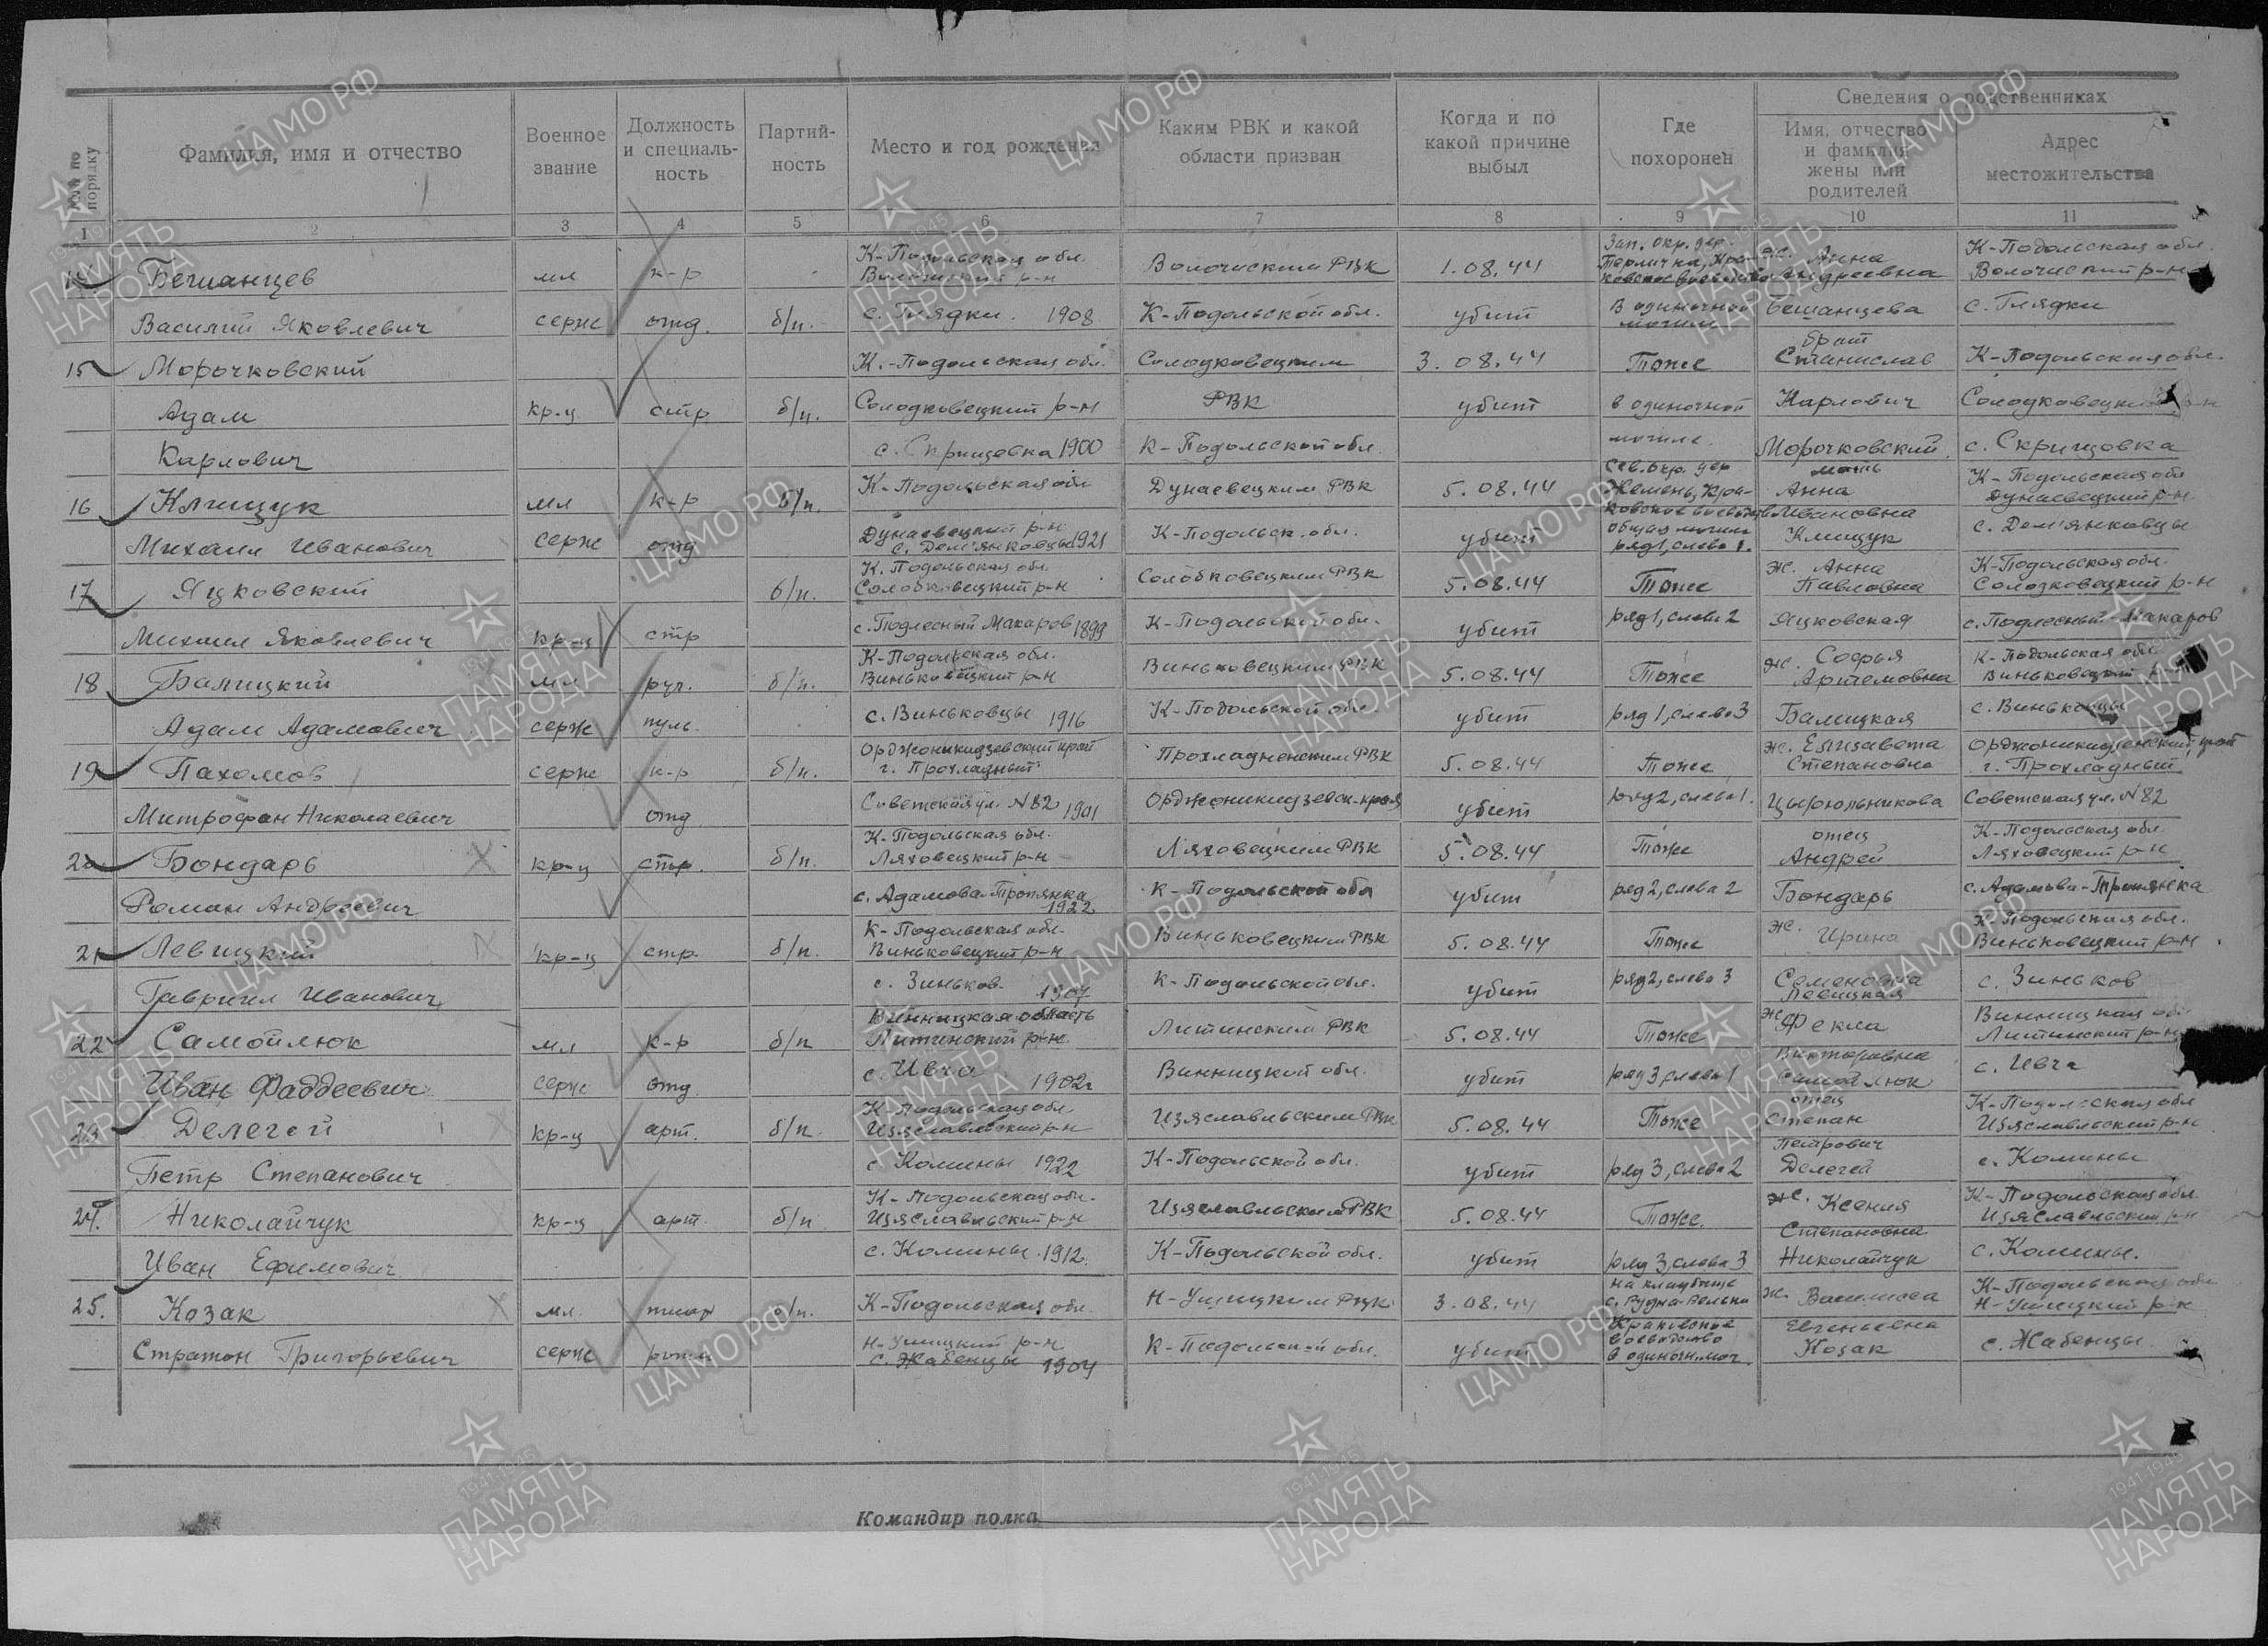 Сведения о родственниках
№№ по порядку
Фамилия, имя и отчество
Военное звание
Должность и специаль-ность
Партий-ность
Место и год рождения
Каким РВК и какой области призван
Когда и по какой причине выбыл
Где похоронен
Имя, отчество и фамилия жены или родителей
Адрес местожительства
1 2 3 4 5 6 7 8 9 10 11
К-Подольская обл. Зап. окр. дер. К-Подольская обл.
14 Бешанцев мл к-р Волочиский р-н Волочиским РВК 1.08.44 ж. Анна Андреевна Волочиский р-н
Василий Яковлевич серж отд. б/п. с. Глядки. 1908 К-Подольской обл. убит В одиночной могиле Бешанцева с. Глядки
брат
15 Морочковский К.-Подольская обл. Солодковецким 3.08.44 Тоже Станислав К-Подольская обл.
Адам кр-ц стр б/п. Солодковецкий р-н РВК убит в одиночной Карлович Солодковецкий р-н
Карлович с. Скрищовка 1900 К-Подольской обл. могиле. Морочковский с. Скрищовка
Сев. окр. дер мать К-Подольская обл
16 Клищук мл к-р б/п. К-Подольская обл Дунаевецким РВК 5.08.44 Анна Дунаевецкий р-н
Ивановна
Михаил Иванович серж отд Дунаевецкий р-н с. Дем'янковцы 1921 К-Подольск. обл. убит общая могила ряд 1, слева 1. Клищук с. Дем'янковцы
К. Подольская обл. ж. Анна К-Подольская обл.
17 Яцковский б/п. Солобковецкий р-н Солобковецким РВК 5.08.44 Тоже Павловна Солодковецкий р-н
Михаил Яковлевич кр-ц стр с. Подлесный Макаров 1899 К-Подольской обл. убит ряд 1, слева 2 Яцковская с. Подлесный-Макаров
К-Подольская обл. ж. Софья К-Подольская обл.
18 Балицкий мл руч. б/п. Виньковецкий р-н Виньковецким РВК 5.08.44 Тоже Артемовна Виньковецкий
Адам Адамович серж пуль. с. Виньковцы 1916 К-Подольской обл. убит ряд 1, слева 3 Балицкая с. Виньковцы
Орджоникидзевский край ж. Елизавета Орджоникидзевский край
19 Пахомов серж к-р б/п. г. Прохладный Прохладненским РВК 5.08.44 Тоже Степановна г. Прохладный
Митрофан Николаевич отд. Советская ул. N 82 1901 Орджоникидзевск. края убит ряд 2, слева 1. Советская ул. N 82
К-Подольская обл. отец К-Подольская обл.
20 Бондарь кр-ц стр. б/п. Ляховецкий р-н Ляховецким РВК 5.08.44 Тоже Андрей Ляховецкий р-н
Роман Андреевич с. Адамова-Тропянка 1922 К-Подольской обл убит ряд 2, слева 2 Бондарь с. Адамова-Тропянка
К-Подольская обл. ж. К-Подольская обл.
21 Левицкий кр-ц стр. б/п. Виньковецкий р-н Виньковецким РВК 5.08.44 Тоже Ирина Виньковецкий р-н
Гавриил Иванович с. Зиньков. 1907 К-Подольской обл. убит ряд 2, слева 3 Семеновна Левицкая с. Зиньков
Винницкая область ж. Винницкая обл.
22 Самойлюк мл к-р б/п Литинский р-н Литинским РВК 5.08.44 Тоже Фекла Литинский р-н
Иван Фаддеевич серж отд. с. Ивча 1902 Винницкой обл. убит ряд 3, слева 1 Викторовна Самойлюк с. Ивча
К-Подольская обл. отец К-Подольская обл
23 Делегей кр-ц арт. б/п. Изяславльский р-н Изяславльским РВК 5.08.44 Тоже Степан Изяславльский р-н
Петр Степанович с. Комины 1922 К-Подольской обл. убит ряд 3, слева 2 Петрович Делегей с. Комины
К-Подольская обл. К-Подольская обл.
24. Николайчук кр-ц арт. б/п Изяславльский р-н Изяславльским РВК 5.08.44 Тоже. ж. Ксения Изяславльский р-н
Иван Ефимович с. Комины. 1912. К-Подольской обл. убит ряд 3, слева 3 Степановна Николайчук с. Комины.
К-Подольская обл
25. Козак мл. б/п. К-Подольская обл. Н-Ушицким РВК 3.08.44 ж. Н-Ушицкий р-н
Стратон Григорьевич серж роты Н-Ушицкий р-н с. Жабенцы 1904 К-Подольской обл. убит Краковское воеводство в одиночн. мог. Евгеньевна Козак с. Жабенцы
Командир полка
ЦАМО РФ
1941-1945
ПАМЯТЬ НАРОДА